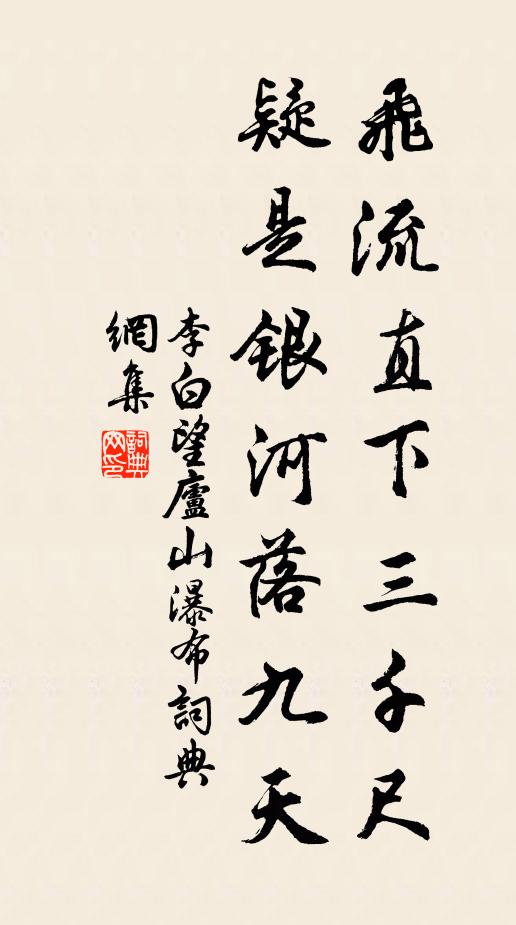 飛流直下三千尺
疑是銀河落九天
李白望廬山瀑布詞典
網集
詞典
网印